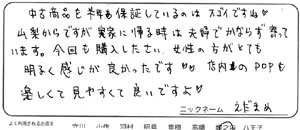 中古商品を半年も保証しているのはスゴイですね♡
山梨からですが実家に帰る時は夫婦でかならず寄って
います。今回も購入したい。女性の方がとても
明るく感じが良かったです♡♡ 店内のPOPも
楽しくて見やすくて良いですよ♡
ニックネーム えだまめ
よく利用されるお店を
立川 小作 羽村 昭島 青梅 高幡 八王子